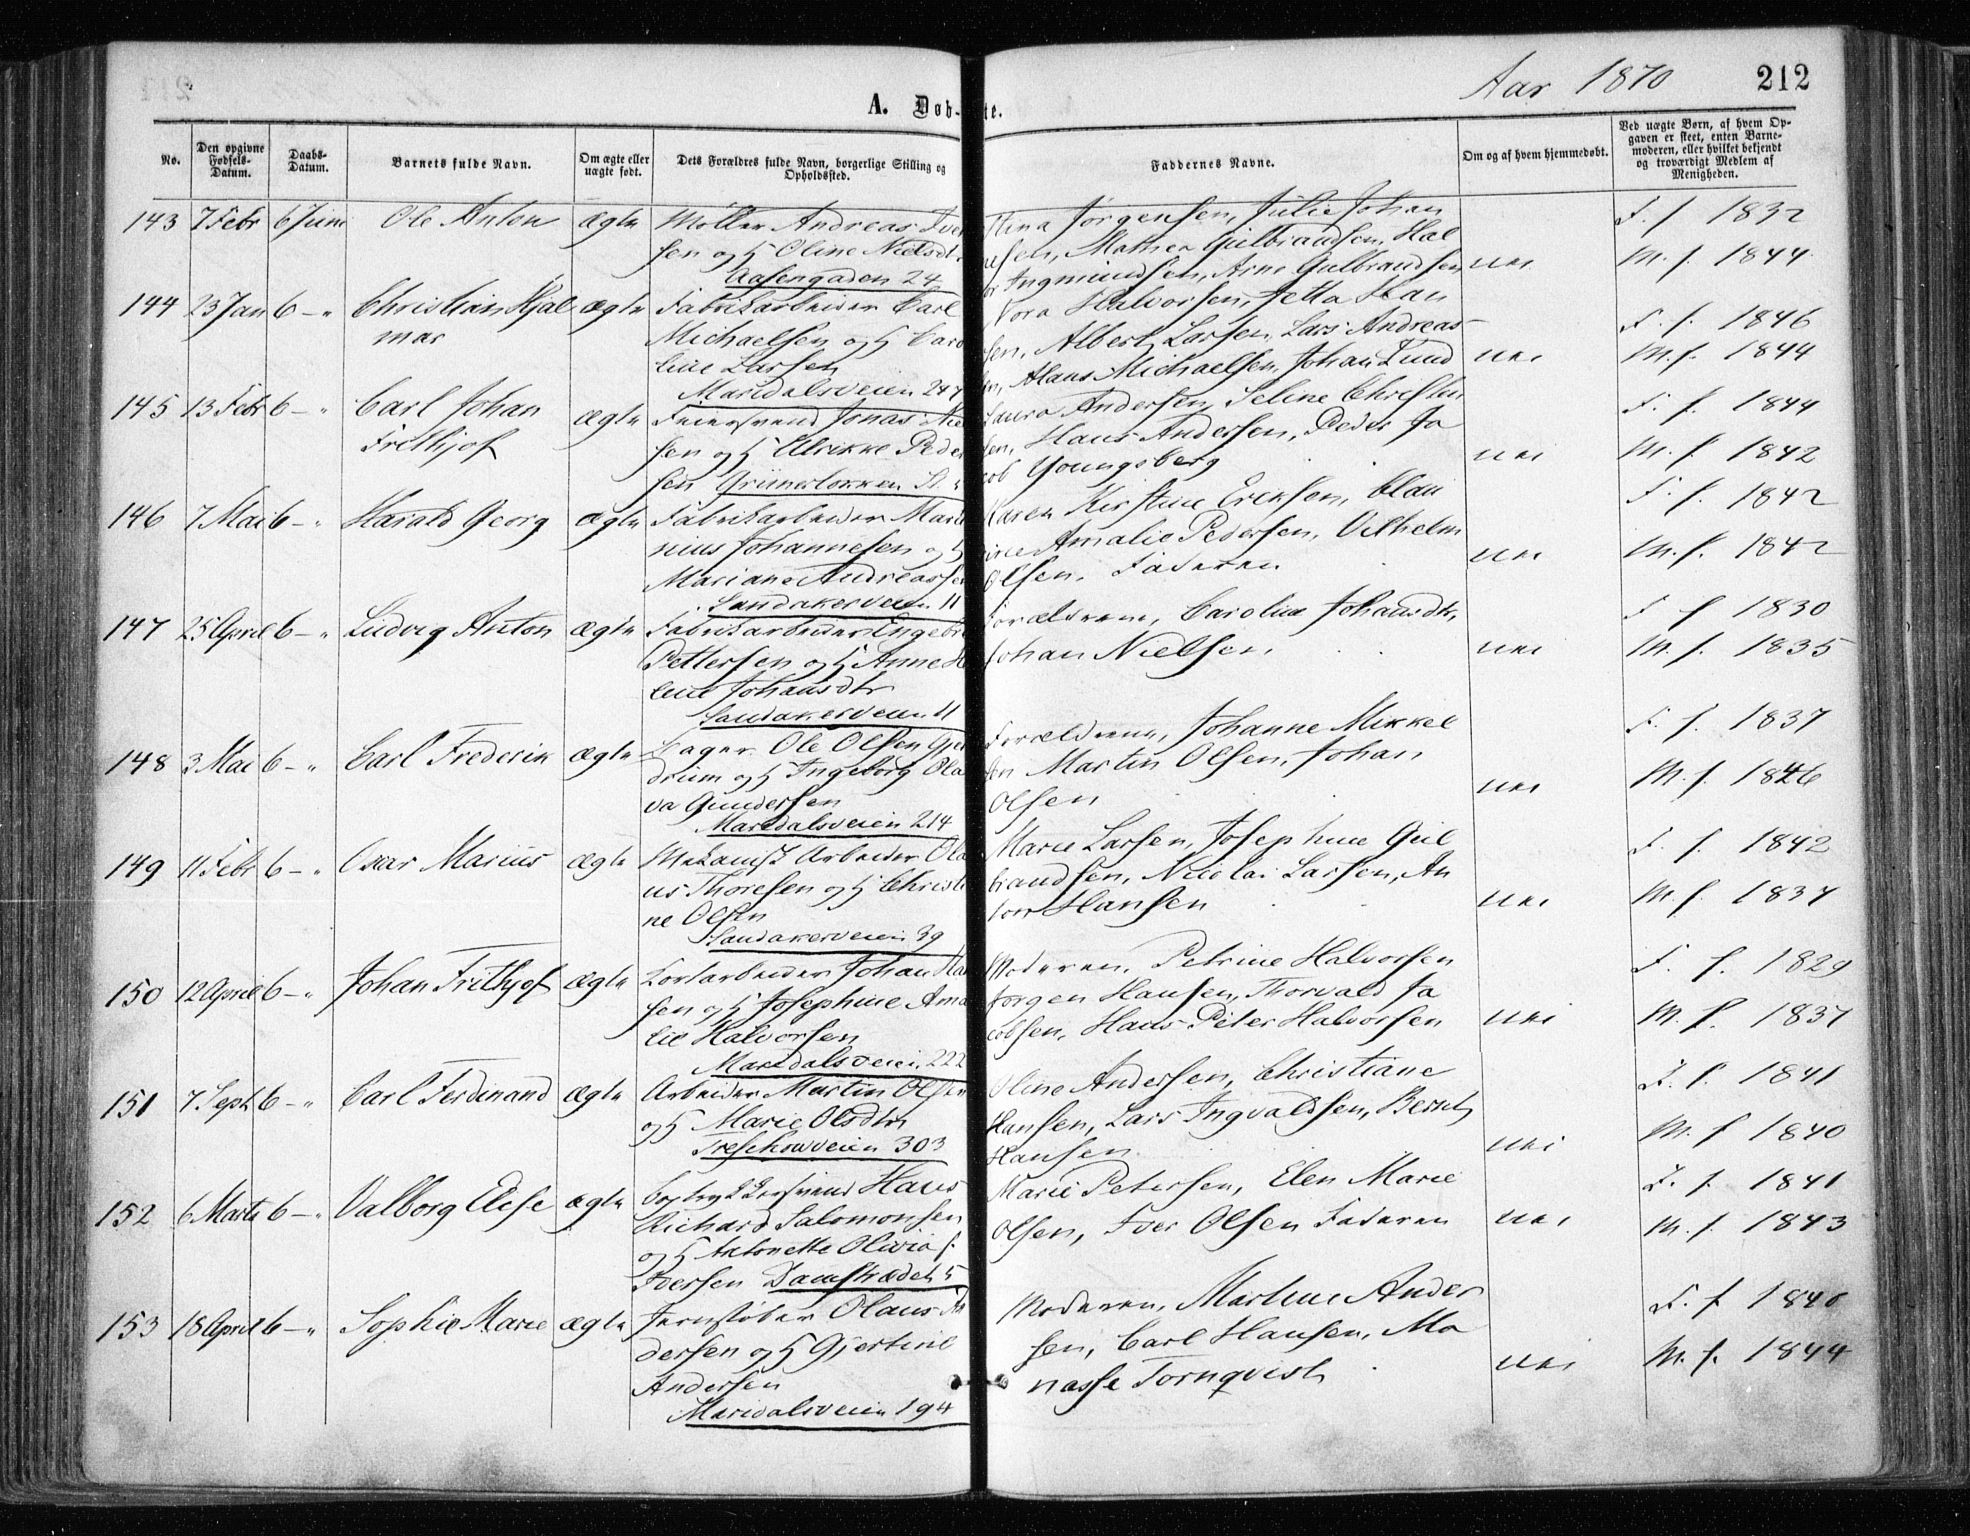 Aar 1870
212
A. Døb-
te.
No.
Den opgivne Fødsels-Datum.
Daabs-Datum.
Barnets fulde Navn.
Om ægte eller uægte født.
Dets Forældres fulde Navn, borgerlige Stilling og Opholdssted.
Faddernes Navne.
Om og af hvem hjemmedøbt.
Ved uægte Børn, af hvem Opgaven er skeet, enten Barnemoderen, eller hvilket bekjendt og troværdigt Medlem af Menigheden.
143 7 Febr 6 Juni Ole Anton ægte Møller Andreas Iver
sen og H Oline Nielsdt.
Aasengaden 24
Stina Jørgensen, Julie Johan
nesen, Mathea Gulbrandsen, Hal
vor Ingmundsen, Arne Gulbrandsen
nei
F. f. 1832
M. f. 1844
144 23 Jan 6 - " Christian Hjal ægte Fabrikarbeider Carl
mar
Michaelsen og H Caro
line Larsen
Maridalsveien 247
Nora Halvorsen, Jetta Han
sen, Albert Larsen, Lars Andreas
sen, Klaus Michaelsen, Johan Lund
nei
F. f. 1846
M. f. 1844
145 13 Febr 6 - " Carl Johan
Frithjof
ægte Feiersvend Jonas Niel
sen og H Ulrikke Peder
sen Grünerløkken
Laura Andersen, Seline Christen
sen, Hans Andersen, Peder Ja
cob Youngsberg
nei
F. f. 1844
M. f. 1842
146 7 Mai 6 - " Harald Georg ægte Fabrikarbeider Mari
nius Johannesen og H
Mariane Andreassen
Sandakerveien 11
Karen Kirstine Eriksen, Clau
sine Amalie Pedersen, Vilhelm
Olsen, Faderen
nei
F. f. 1842
M. f. 1842
147 25 April 6 - " Ludvig Anton ægte Fabrikarbeider Engebret
Pettersen og H Anne He
lene Johansdtr
Sandakerveien 11
Forældrene, Caroline Johansdtr,
Johan Nielsen.
nei
F f 1830
M. f. 1835
148 3 Mai 6 - " Carl Frederik ægte Bager Ole Olsen Gjer
drum og H Ingeborg Ola
va Gundersen
Maridalsveien 214
Forældrene, Johanne Mikkel
sen Martin Olsen, Johan
Olsen
nei
F. f. 1837
M. f. 1846
149 11 Febr 6 - " Oscar Marius ægte Mekanisk Arbeider Ola
us Thoresen og H Christi
ne Olsen
Sandakerveien 39
Marie Larsen, Josephine Gul
brandsen, Nicolai Larsen, An
ton Hansen
nei
F. f. 1842
M f. 1837
150 12 April 6 - " Johan Frithjof ægte Løsarbeider Johan Han
sen og H Josephine Ama
lie Halvorsen
Maridalsveien 222
Moderen, Petrine Halvorsen
Jørgen Hansen, Thorvald Ja
cobsen, Hans Peter Halvorsen
nei
F. f. 1829
M. f. 1837
151 7 Sept 6 - " Carl Ferdinand ægte Arbeider Martin Olsen
og H Marie Olsdtr
Treschowveien 303
Oline Andersen, Christiane
Hansen, Lars Ingvaldsen, Bernt
Hansen.
nei
F. f. 1841
M. f 1840
152 6 Marts 6 - " Valborg Elise ægte Bogtrykkersvend Hans
Richard Salomonsen
og H Antonette Olivia f.
Iversen Damstrædet 5
Marie Petersen, Elen Marie
Olsen, Iver Olsen Faderen
nei
F. f. 1841
M. f. 1843
153 18 April 6 - " Sophie Marie ægte Jernstøber Olaus An
dersen og H Gjertine
Andersen
Maridalsveien 194
Moderen, Martine Ander
sen, Carl Hansen, Ma
nasse Tornqvist
nei
F. f 1840
M. f. 1844